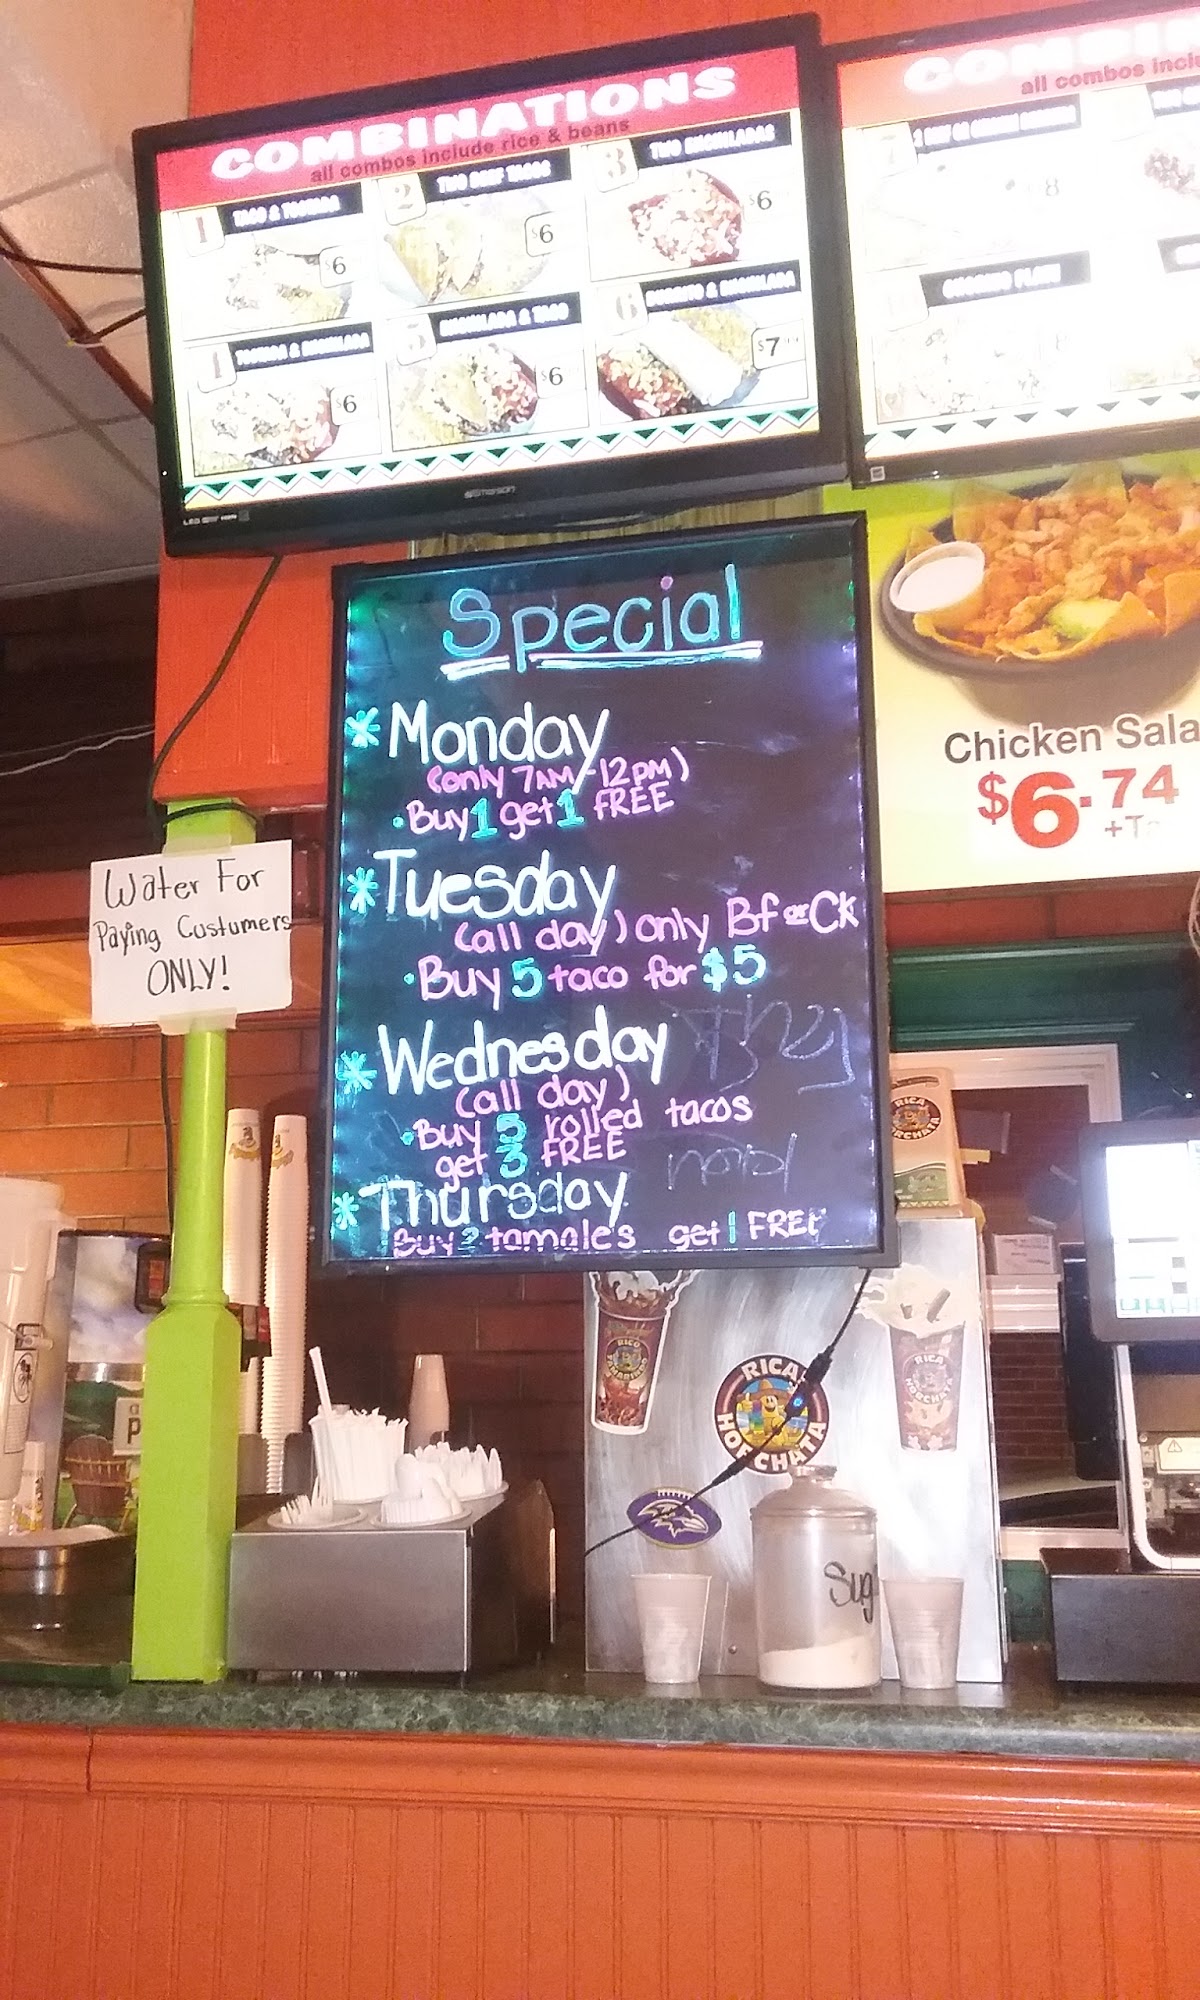 COMBINATIONS
all combos include rice & beans
1 TACO & TOSTADA
$6
2 TWO BEEF TACOS
$6
3 TWO ENCHILADAS
$6
TOSTADA & ENCHILADA
$6
5 ENCHILADA & TACO
$6
6 BURRITO & ENCHILADA
$7
EMERSON
LED HDMI
all combos
7
8
8
Special
* Monday
(only 7AM-12PM)
• Buy 1 get 1 FREE
* Tuesday
(all day) only Bf or CK
• Buy 5 taco for $5
* Wednesday
(all day)
• Buy 5 rolled tacos
get 3 FREE
* Thursday
Buy 2 tamale's get 1 FREE
Water For
Paying Custumers
ONLY!
Chicken Sala
$6.74
+Ta
RICA
HORCHATA
RICO
TAMARINDO
RICA
HORCHATA
RICA
HORCHATA
Sug